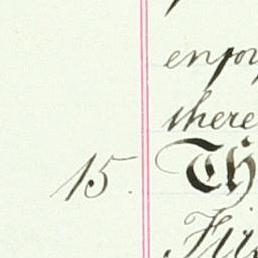 enjoy
there
15. Th
Fir